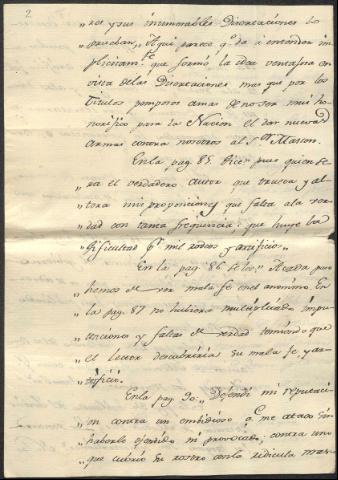 2
"res y sus inumerables Disertaciones lo
"prueban," Aqui parece qe. da á entender im
plicitamte. que formó la idea ventajosa en
vista de las Disertaciones mas que por los
titulos pomposos amas de no ser mui ho
norifico para la Nacion el dar nuevas
armas contra nosotros al Sor. Masson.
En la pag. 85. dice," pues quien se
"ra el verdadero autor que trueca y al
"tera mis proposiciones que falta a la ver
"dad con tanta frequencia: que huye la
"dificultad pr. mil rodeos y artificios"
En la pag. 86 se lee," Acada paso
"hemos de ver mala fe en el anonimo. En
la pag. 87 no hubiera multiplicado impu
"taciones y faltas de verdad temiendo que
"el lector descubriria su mala fe y ar
"tificio.
En la pag. 90. "Defendi mi reputaci
"on contra un embidioso qe. me ataco sin
"haberlo ofendido ni provocado; contra uno
"que cubrio su rostro con la ridicula mas-